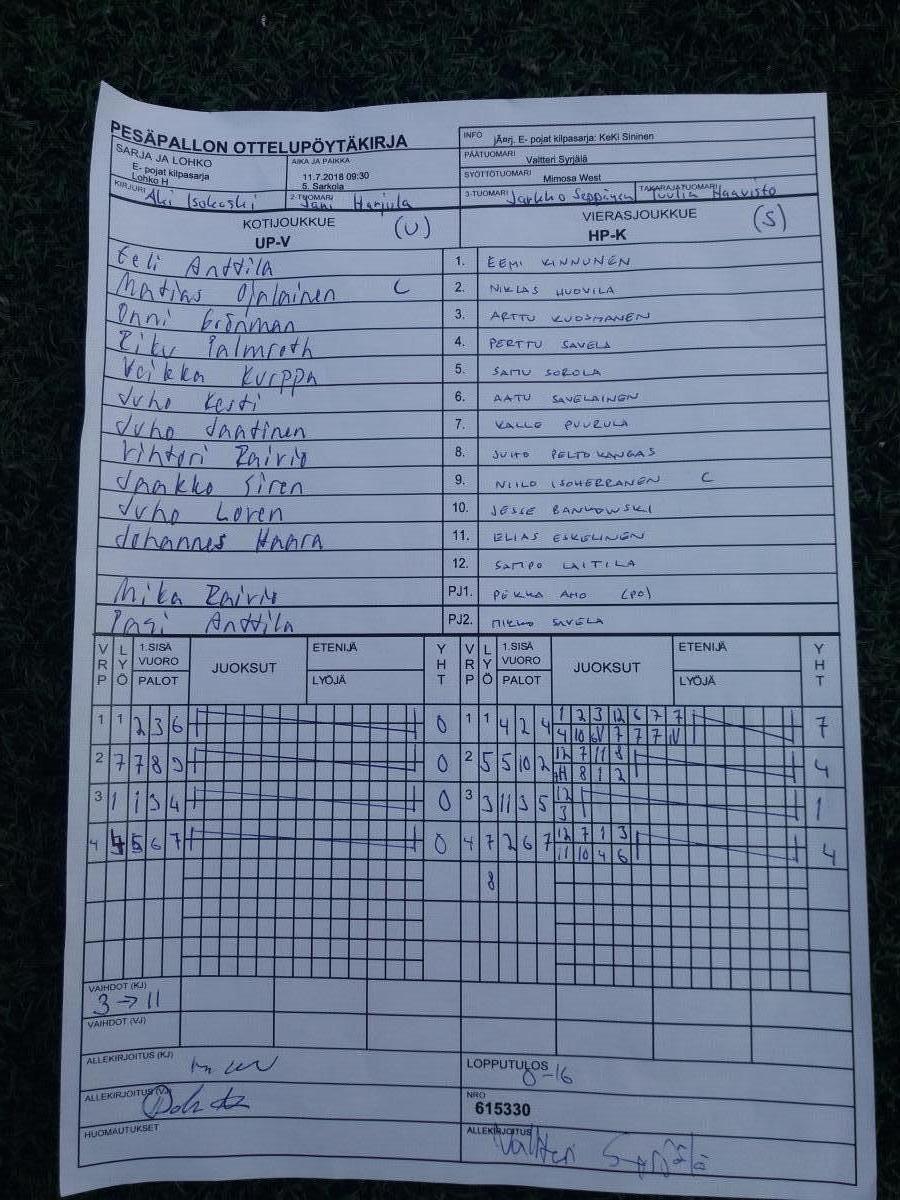 PESÄPALLON OTTELUPÖYTÄKIRJA
SARJA JA LOHKO
E- pojat kilpasarja
Lohko H
AIKA JA PAIKKA
11.7.2018 09:30
5. Sarkola
INFO jÄ¤rj. E- pojat kilpasarja: KeKi Sininen
PÄÄTUOMARI Valtteri Syrjälä
SYÖTTÖTUOMARI Mimosa West
KIRJURI Aki Isokoski
2-TUOMARI Jani Harjula
3-TUOMARI Jarkko Seppänen
TAKARAJATUOMARI Tuulia Haavisto
KOTIJOUKKUE (U)
UP-V
VIERASJOUKKUE (S)
HP-K
Eeli Anttila 1. EEMI KINNUNEN
Matias Ojalainen C 2. NIKLAS HUOVILA
Onni Grönman 3. ARTTU KUOSMANEN
Riku Palmroth 4. PERTTU SAVELA
Veikka Kurppa 5. SAMU SOROLA
Juho Kesti 6. AATU SAVELAINEN
Juho Jaatinen 7. KALLE PUURULA
Vihtori Rairio 8. JUHO PELTOKANGAS
Jaakko Siren 9. NIILO ISOHERRANEN C
Juho Loren 10. JESSE BANKOWSKI
Johannes Haara 11. ELIAS ESKELINEN
12. SAMPO LAITILA
Mika Rairio PJ1. PEKKA AHO (PO)
Pasi Anttila PJ2. MIKKO SAVELA
VRP LYÖ 1.SISÄ VUORO PALOT JUOKSUT ETENIJÄ LYÖJÄ YHT VRP LYÖ 1.SISÄ VUORO PALOT JUOKSUT ETENIJÄ LYÖJÄ YHT
1 1 2 3 6 0 1 1 4 2 4 1 2 3 12 6 7 7 7
4 10 6V 7 7 7 IV
2 7 7 8 9 0 2 5 5 10 2 12 7 11 8 4
8 1 2
3 1 1 3 4 0 3 3 11 3 5 12 1
3
4 5 6 7 0 4 7 2 6 7 12 7 1 3 4
11 10 4 6
8
VAIHDOT (KJ)
3 → 11
VAIHDOT (VJ)
ALLEKIRJOITUS (KJ)
LOPPUTULOS
0-16
ALLEKIRJOITUS (VJ)
NRO
615330
HUOMAUTUKSET
ALLEKIRJOITUS
Valtteri Syrjälä